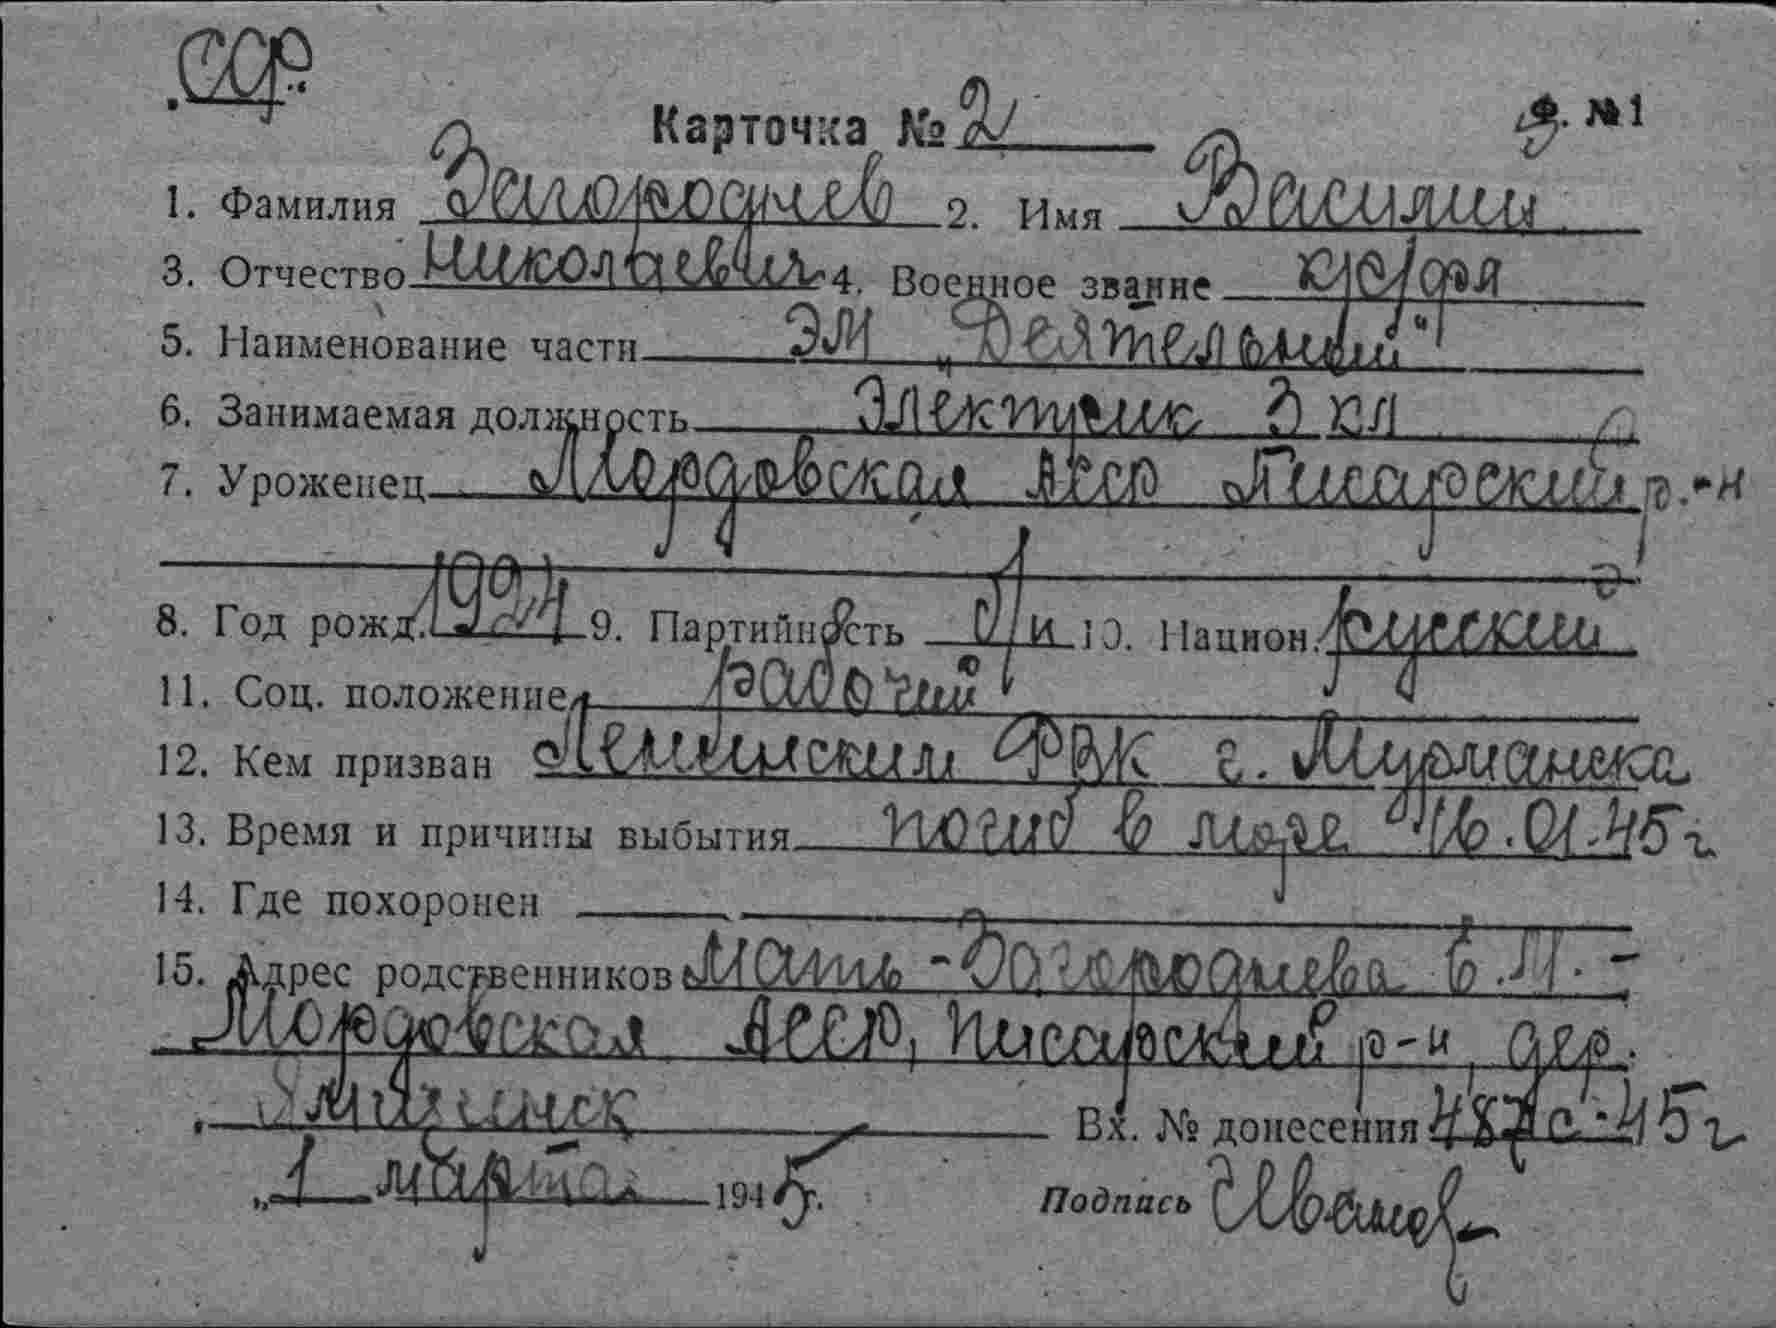 ССР.
Карточка № 2 ф. №1
1. Фамилия Загороднев 2. Имя Василий
3. Отчество Николаевич 4. Военное звание кр/фл
5. Наименование части ЭМ „Деятельный"
6. Занимаемая должность Электрик 3 кл
7. Уроженец Мордовская АССР Писарский р-н
8. Год рожд. 1924 9. Партийность б/п 10. Национ. русский
11. Соц. положение рабочий
12. Кем призван Ленинским РВК г. Мурманска
13. Время и причины выбытия погиб в море 16.01.45 г
14. Где похоронен
15. Адрес родственников Мать - Загороднева Е.М. -
Мордовская АССР, Писсарский р-н, дер.
Вх. № донесения 487с-45 г
„1 марта 1945 г.
Подпись Иванов